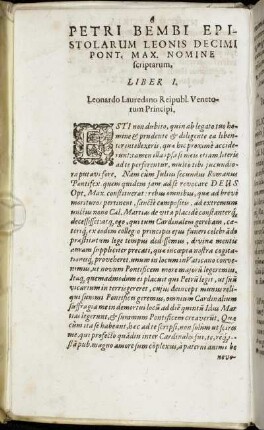 PETRI BEMBI EPI-
STOLARUM LEONIS DECIMI
PONT. MAX. NOMINE
scriptarum,
LIBER I.
Leonardo Lauredano Reipubl. Veneto-
rum Principi,
ETSI non dubito, quin ab legato tuo ho-
mine & prudente & diligente ea liben-
ter intellexeris, quæ hic proximè accide-
runt: tamen illa ipsa si meis etiam literis
ad te perscribuntur, multo tibi jucundio-
ra putavi fore. Nam cùm Julius secundus Romanus
Pontifex, quem quidem jam ad se revocare DEUS
Opt. Max. constituerat: rebus omnibus, quæ ad brevi
morituros pertinent, sanctè compositis, ad extremum
noctis nono Cal. Martias de vita placidè constanterq́;
decessisset: ego, qui tum Cardinalem gerebam, cæte-
riq́; ex eodem collegio principes ejus funeri celebrando
præstitutum lege tempus dedissemus, divina mente
omnium suppliciter precati, quæ incœpta nostra cœpta-
toneret, prohiberet, unum in locum in Vaticano conve-
nimus, ut novum Pontificem more majorū legeremus,
Itaq; quemadmodum is placuit qui Petrū legit, ut sui
vicarium in terris gereret, cujus deinceps munus reli-
qui summi Pontifices geremus, omnium Cardinalium
suffragia me in demortui locū ad diē quintū Idus Mar-
tias legerunt, & summum Pontificem creaverūt. Quæ
cùm ita se habeant, hæc ad te scripsi, non solùm ut scires
me, qui profectò quàdin inter Cardinales fui, te, rēq́;
pub. magno amore sum complexus, à paterni animi be-
nevo-